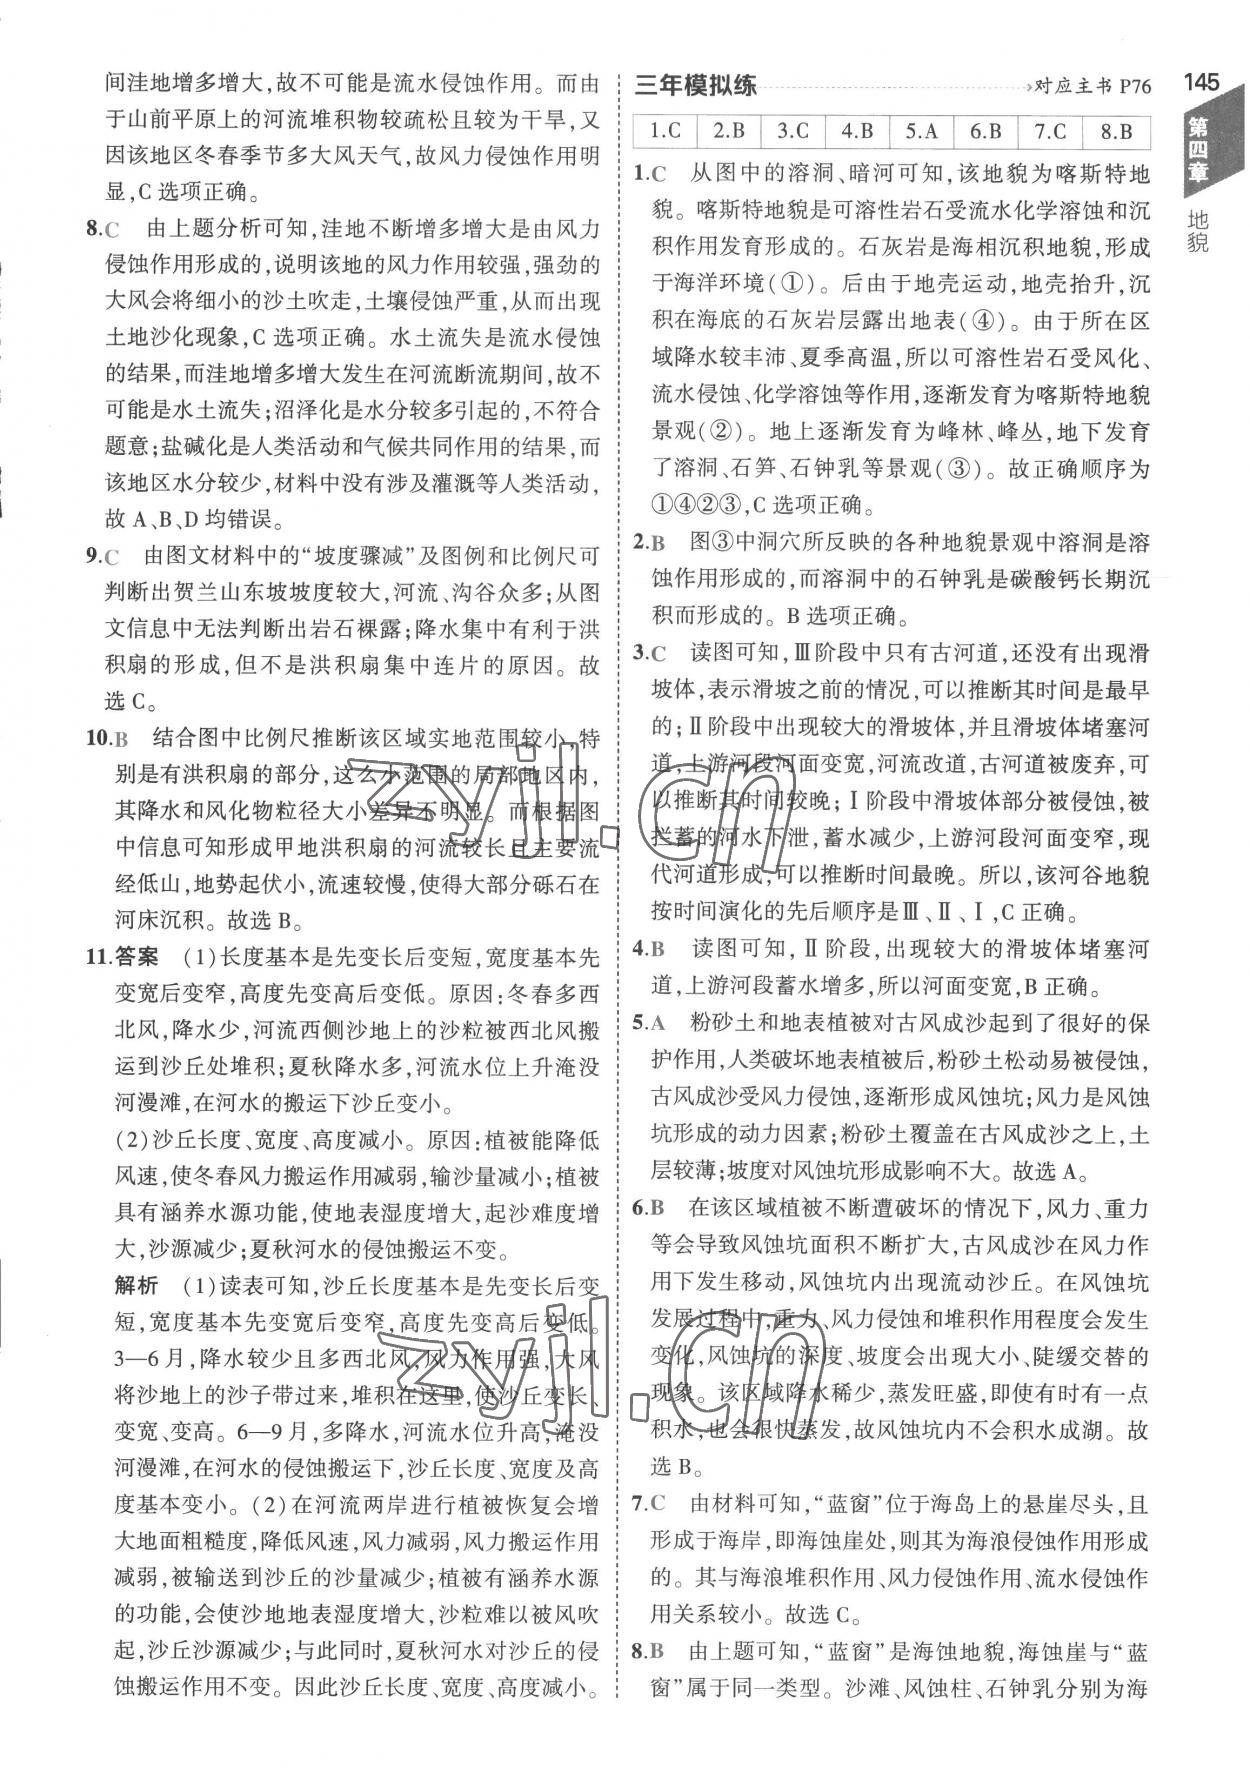 间洼地增多增大,故不可能是流水侵蚀作用。而由
于山前平原上的河流堆积物较疏松且较为干旱,又
因该地区冬春季节多大风天气,故风力侵蚀作用明
显,C选项正确。
8.C 由上题分析可知,洼地不断增多增大是由风力
侵蚀作用形成的,说明该地的风力作用较强,强劲的
大风会将细小的沙土吹走,土壤侵蚀严重,从而出现
土地沙化现象,C选项正确。水土流失是流水侵蚀
的结果,而洼地增多增大发生在河流断流期间,故不
可能是水土流失;沼泽化是水分较多引起的,不符合
题意;盐碱化是人类活动和气候共同作用的结果,而
该地区水分较少,材料中没有涉及灌溉等人类活动,
故A、B、D均错误。
9.C 由图文材料中的“坡度骤减”及图例和比例尺可
判断出贺兰山东坡坡度较大,河流、沟谷众多;从图
文信息中无法判断出岩石裸露;降水集中有利于洪
积扇的形成,但不是洪积扇集中连片的原因。故
选C。
10.B 结合图中比例尺推断该区域实地范围较小,特
别是有洪积扇的部分,这么小范围的局部地区内,
其降水和风化物粒径大小差异不明显。而根据图
中信息可知形成甲地洪积扇的河流较长且主要流
经低山,地势起伏小,流速较慢,使得大部分砾石在
河床沉积。故选B。
11.答案 (1)长度基本是先变长后变短,宽度基本先
变宽后变窄,高度先变高后变低。原因:冬春多西
北风,降水少,河流西侧沙地上的沙粒被西北风搬
运到沙丘处堆积;夏秋降水多,河流水位上升淹没
河漫滩,在河水的搬运下沙丘变小。
(2)沙丘长度、宽度、高度减小。原因:植被能降低
风速,使冬春风力搬运作用减弱,输沙量减小;植被
具有涵养水源功能,使地表湿度增大,起沙难度增
大,沙源减少;夏秋河水的侵蚀搬运不变。
解析 (1)读表可知,沙丘长度基本是先变长后变
短,宽度基本先变宽后变窄,高度先变高后变低。
3—6月,降水较少且多西北风,风力作用强,大风
将沙地上的沙子带过来,堆积在这里,使沙丘变长、
变宽、变高。6—9月,多降水,河流水位升高,淹没
河漫滩,在河水的侵蚀搬运下,沙丘长度、宽度及高
度基本变小。(2)在河流两岸进行植被恢复会增
大地面粗糙度,降低风速,风力减弱,风力搬运作用
减弱,被输送到沙丘的沙量减少;植被有涵养水源
的功能,会使沙地地表湿度增大,沙粒难以被风吹
起,沙丘沙源减少;与此同时,夏秋河水对沙丘的侵
蚀搬运作用不变。因此沙丘长度、宽度、高度减小。
三年模拟练 对应主书P76
1.C 2.B 3.C 4.B 5.A 6.B 7.C 8.B
1.C 从图中的溶洞、暗河可知,该地貌为喀斯特地
貌。喀斯特地貌是可溶性岩石受流水化学溶蚀和沉
积作用发育形成的。石灰岩是海相沉积地貌,形成
于海洋环境(①)。后由于地壳运动,地壳抬升,沉
积在海底的石灰岩层露出地表(④)。由于所在区
域降水较丰沛、夏季高温,所以可溶性岩石受风化、
流水侵蚀、化学溶蚀等作用,逐渐发育为喀斯特地貌
景观(②)。地上逐渐发育为峰林、峰丛,地下发育
了溶洞、石笋、石钟乳等景观(③)。故正确顺序为
①④②③,C选项正确。
2.B 图③中洞穴所反映的各种地貌景观中溶洞是溶
蚀作用形成的,而溶洞中的石钟乳是碳酸钙长期沉
积而形成的。B选项正确。
3.C 读图可知,Ⅲ阶段中只有古河道,还没有出现滑
坡体,表示滑坡之前的情况,可以推断其时间是最早
的;Ⅱ阶段中出现较大的滑坡体,并且滑坡体堵塞河
道,上游河段河面变宽,河流改道,古河道被废弃,可
以推断其时间较晚;Ⅰ阶段中滑坡体部分被侵蚀,被
拦蓄的河水下泄,蓄水减少,上游河段河面变窄,现
代河道形成,可以推断时间最晚。所以,该河谷地貌
按时间演化的先后顺序是Ⅲ、Ⅱ、Ⅰ,C正确。
4.B 读图可知,Ⅱ阶段,出现较大的滑坡体堵塞河
道,上游河段蓄水增多,所以河面变宽,B正确。
5.A 粉砂土和地表植被对古风成沙起到了很好的保
护作用,人类破坏地表植被后,粉砂土松动易被侵蚀,
古风成沙受风力侵蚀,逐渐形成风蚀坑;风力是风蚀
坑形成的动力因素;粉砂土覆盖在古风成沙之上,土
层较薄;坡度对风蚀坑形成影响不大。故选A。
6.B 在该区域植被不断遭破坏的情况下,风力、重力
等会导致风蚀坑面积不断扩大,古风成沙在风力作
用下发生移动,风蚀坑内出现流动沙丘。在风蚀坑
发展过程中,重力、风力侵蚀和堆积作用程度会发生
变化,风蚀坑的深度、坡度会出现大小、陡缓交替的
现象。该区域降水稀少,蒸发旺盛,即使有时有一点
积水,也会很快蒸发,故风蚀坑内不会积水成湖。故
选B。
7.C 由材料可知,“蓝窗”位于海岛上的悬崖尽头,且
形成于海岸,即海蚀崖处,则其为海浪侵蚀作用形成
的。其与海浪堆积作用、风力侵蚀作用、流水侵蚀作
用关系较小。故选C。
8.B 由上题可知,“蓝窗”是海蚀地貌,海蚀崖与“蓝
窗”属于同一类型。沙滩、风蚀柱、石钟乳分别为海
145
第四章
地貌
zyjl.cn
zyjl.cn